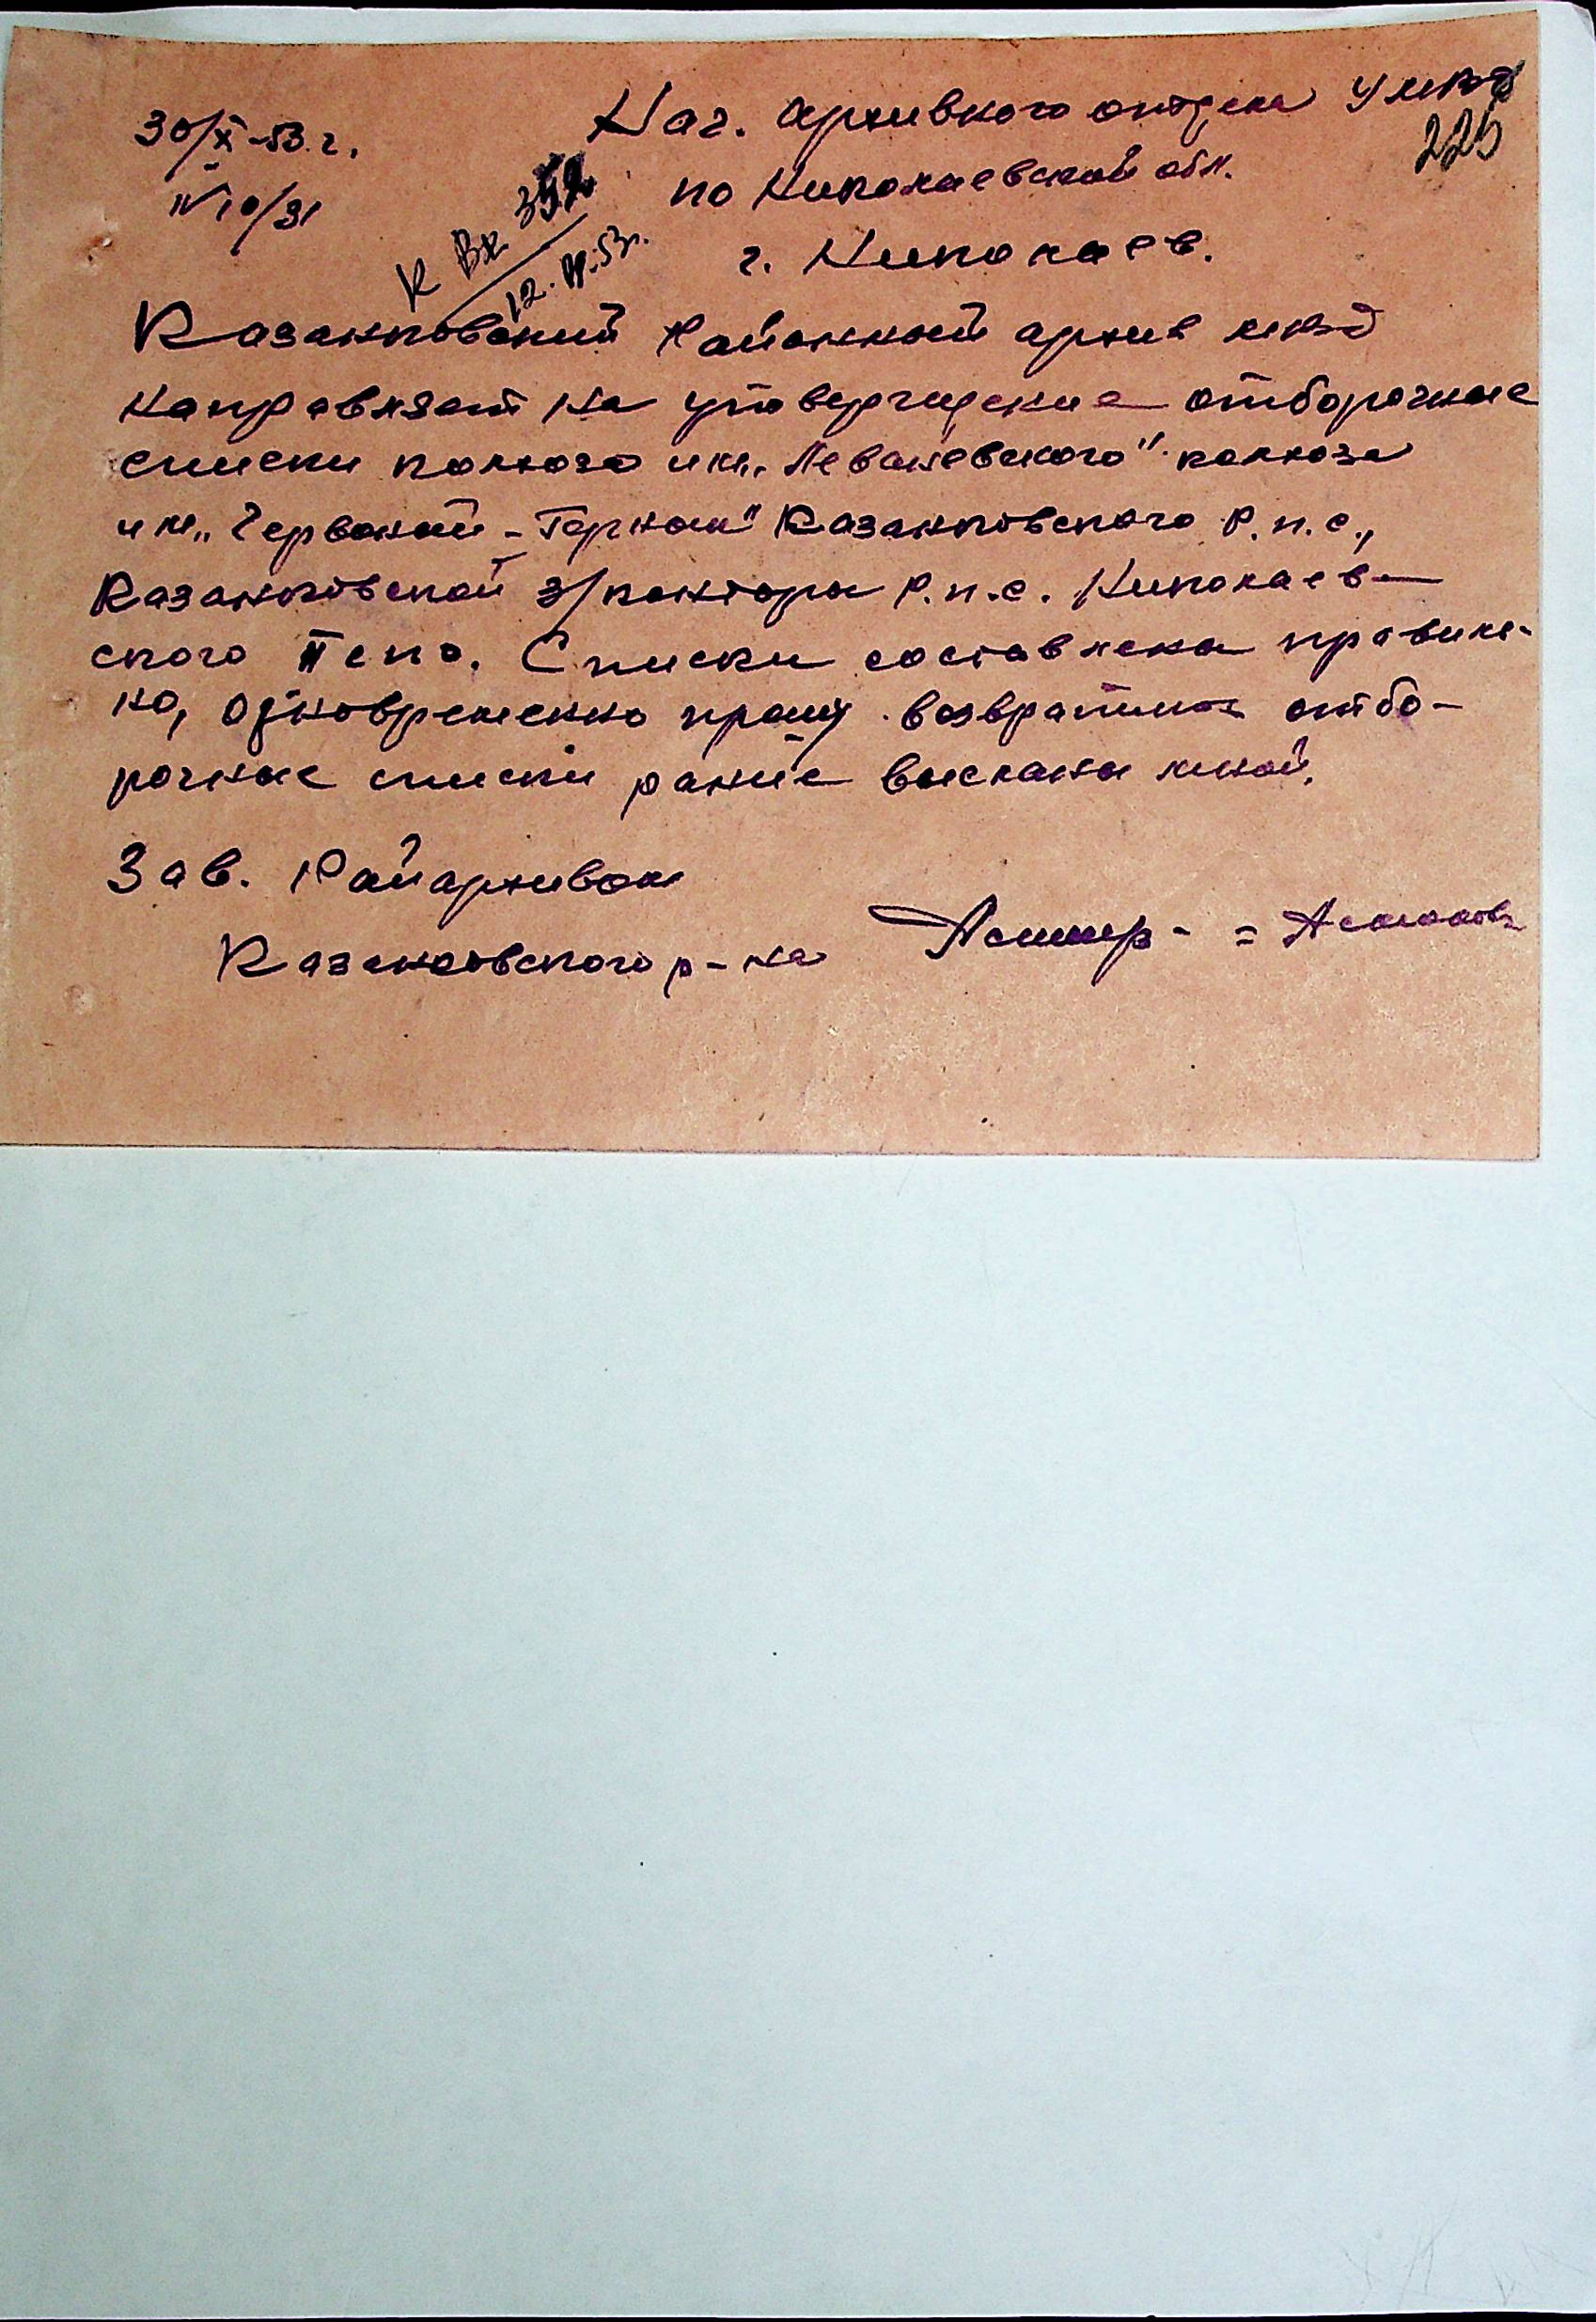 Нач. Архивного отдела УМВД
225
30/X-53 г.
по Николаевской обл.
N 10/31
К Вх 352
12.XI-53г.
г. Николаев.
Казанковский Районный архив МВД
направляет на утверждение отборочные
списки колхоза им. „Леваневского" колхоза
им. „Червоный-Горный" Казанковского р.п.с.,
Казанковской э/конторы р.п.с. Николаев-
ского Сельэ. Списки составлены правиль-
но, одновременно прошу возвратить отбо-
рочные списки рание высланы мной.
Зав. Райархивом
Казанковского р-на